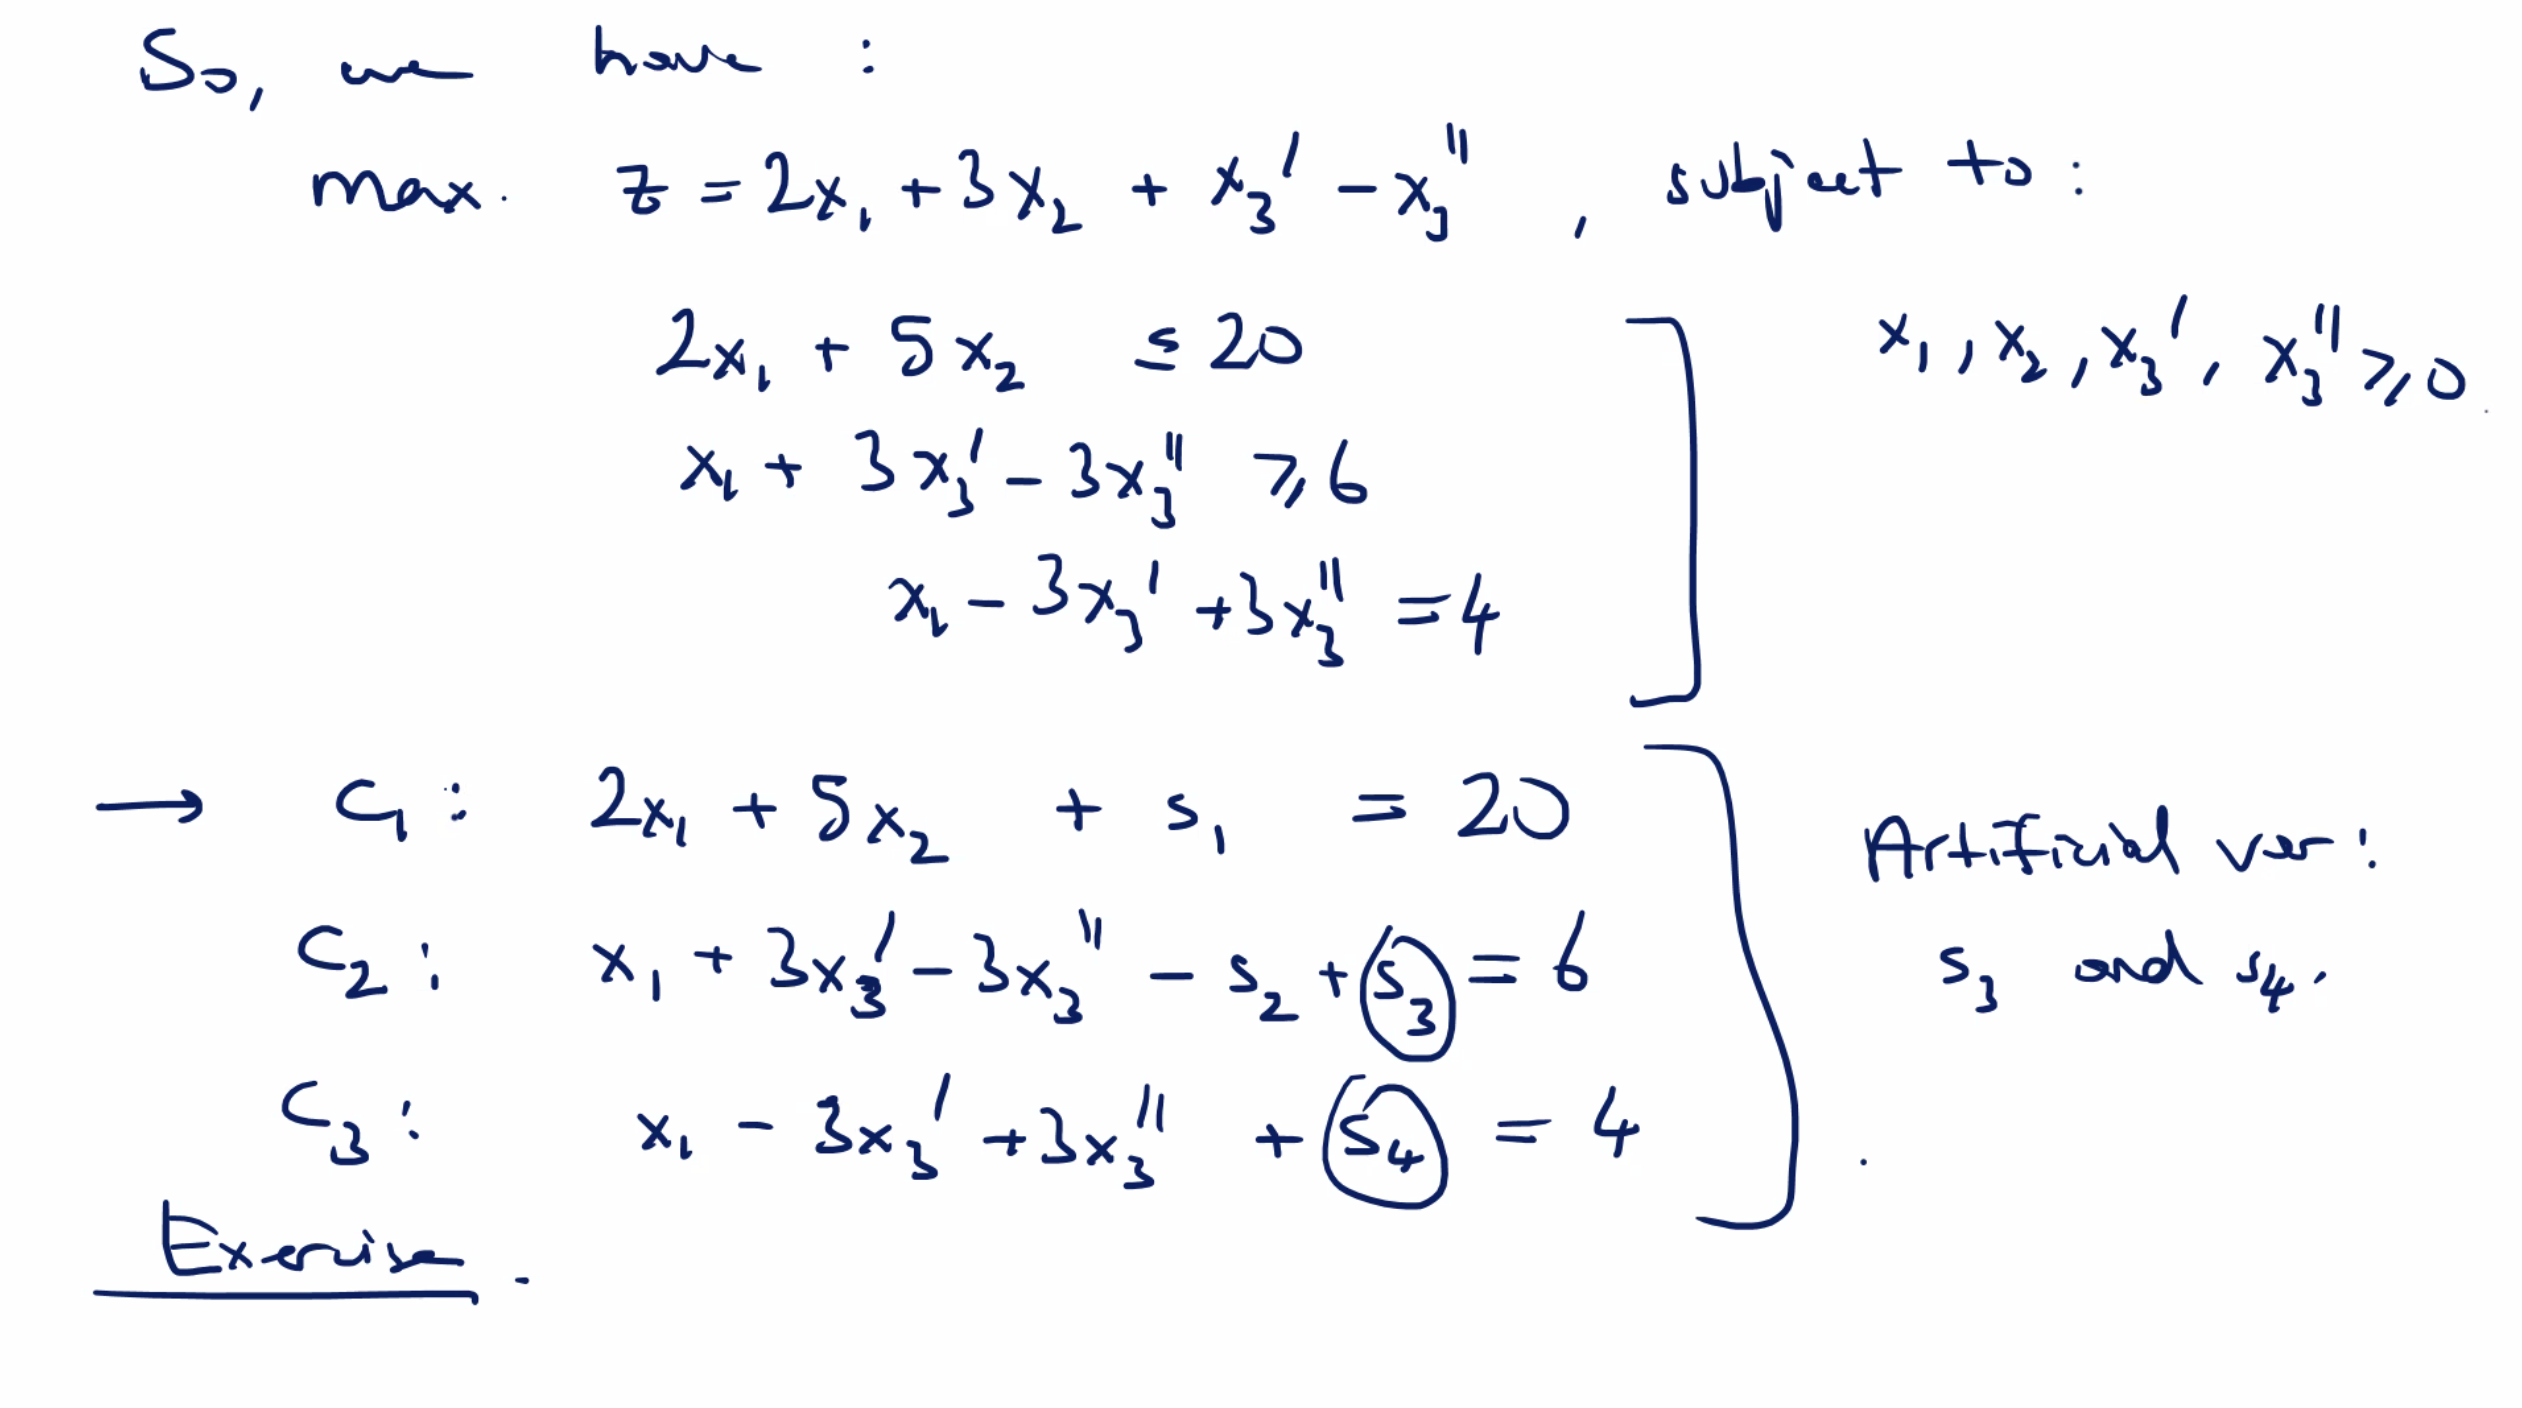 So, we have :
max. z = 2x₁ + 3x₂ + x₃' - x₃'' , subject to :
2x₁ + 5x₂ ≤ 20
x₁, x₂, x₃', x₃'' ≥ 0.
x₁ + 3x₃' - 3x₃'' ≥ 6
x₁ - 3x₃' + 3x₃'' = 4
→ C₁ : 2x₁ + 5x₂ + s₁ = 20
C₂ : x₁ + 3x₃' - 3x₃'' - s₂ + s₃ = 6
C₃ : x₁ - 3x₃' + 3x₃'' + s₄ = 4
Artificial var :
s₃ and s₄.
Exercise.